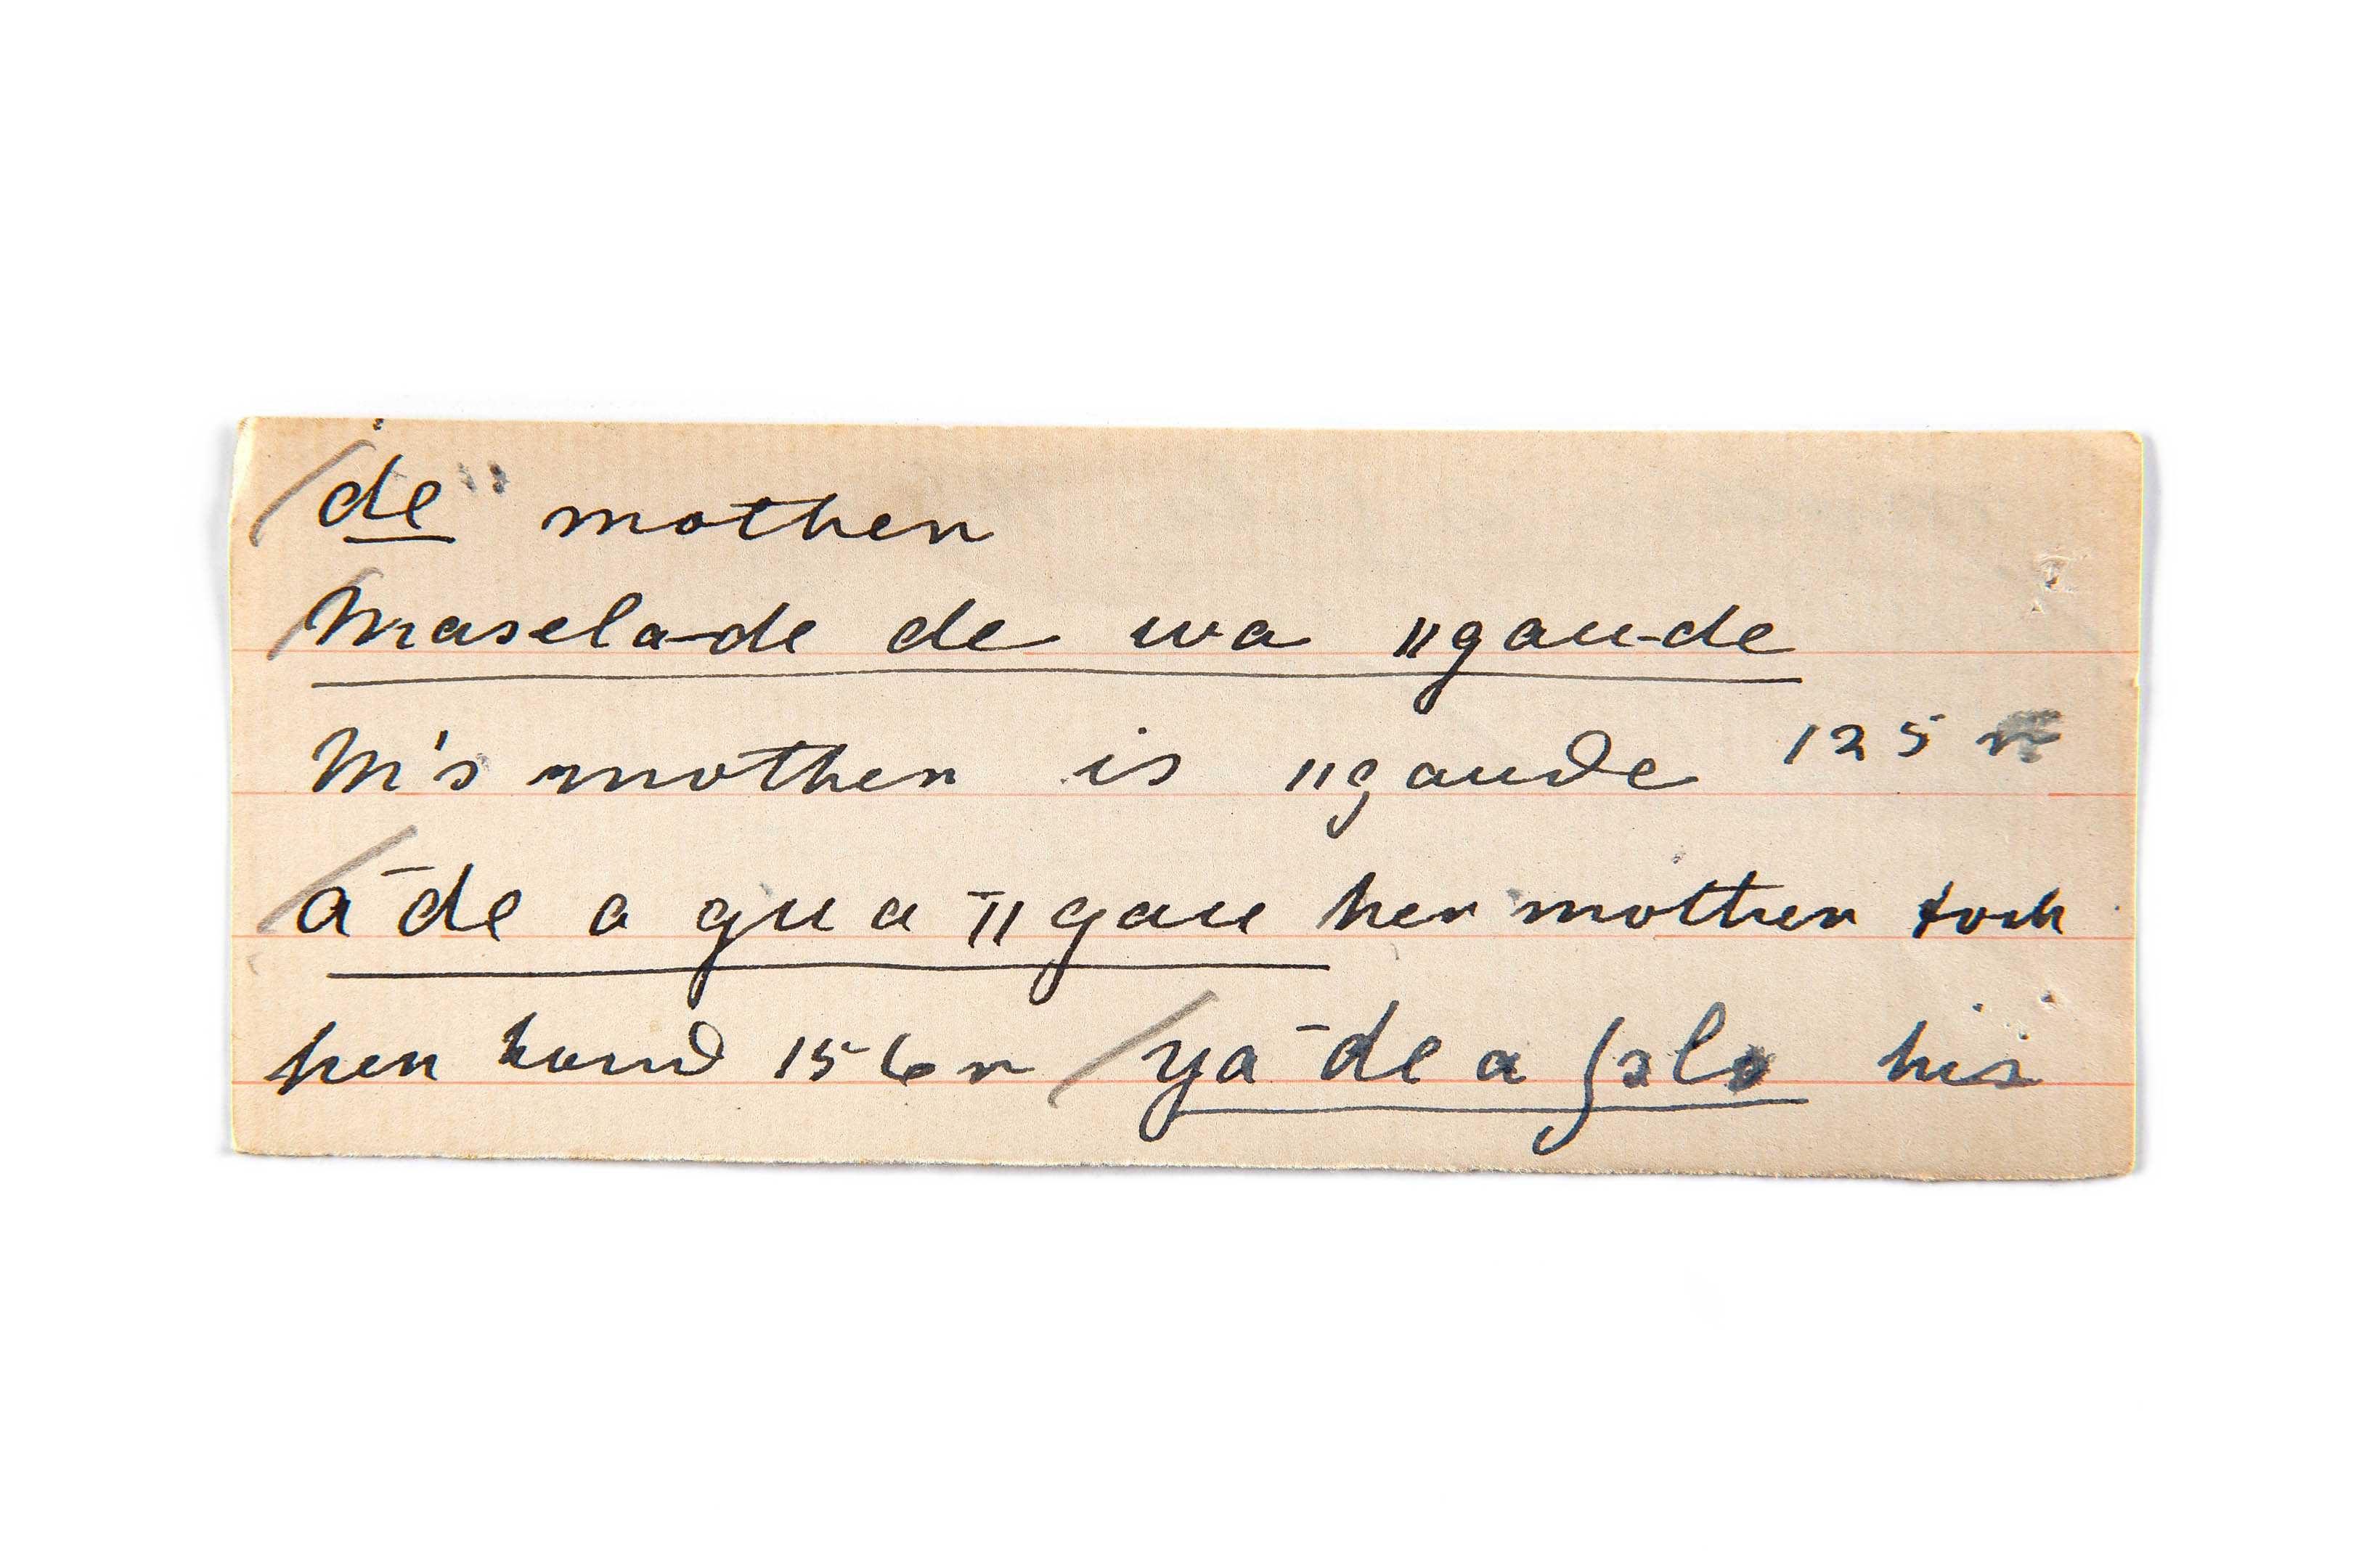 de mother
Masela-de de wa ǁgau-de
M's mother is ǁgaude 125 r
ā-de a gu a ǁgau her mother took
her hand 156 r yā-de a his